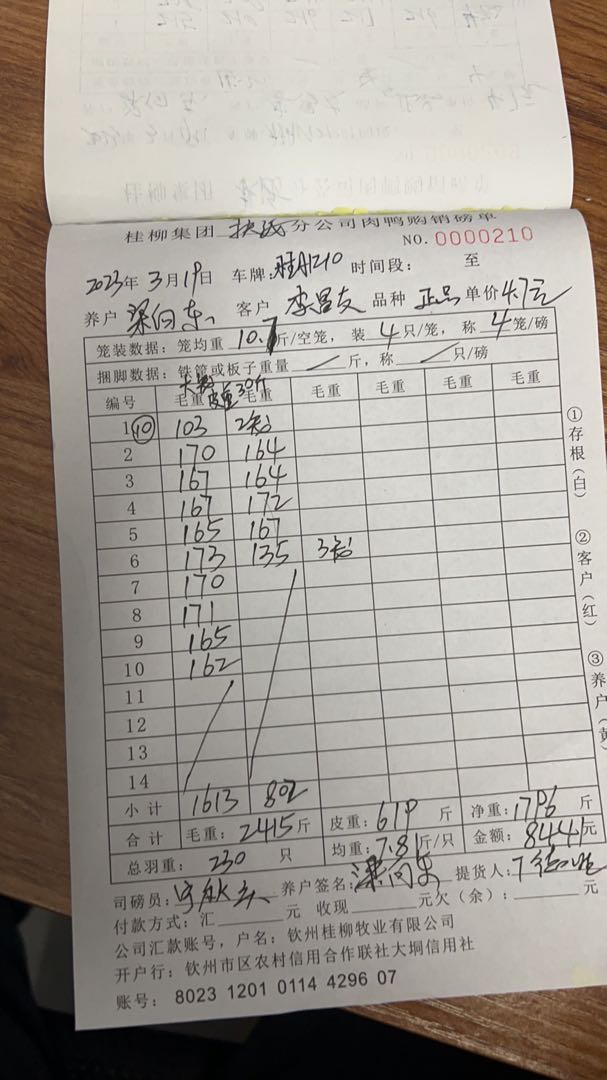 桂柳集团 扶绥 分公司肉鸭购销磅单
NO. 0000210
2023年 3月19日 车牌: 桂A1210 时间段: 至
养户 梁向东 客户 李昌友 品种 正品 单价 4.7元
笼装数据: 笼均重 10.7 斤/空笼, 装 4 只/笼, 称 4 笼/磅
捆脚数据: 铁管或板子重量 / 斤, 称 / 只/磅
皮重30斤
编号 毛重 毛重 毛重 毛重 毛重 毛重
1 ⑩ 103 2笼
2 170 164
3 167 164
4 167 172
5 165 167
6 173 135 3笼
7 170
8 171
9 165
10 162
11
12
13
14
小计 1613 802
合计 毛重: 2415斤 皮重: 619 斤 净重: 1796 斤
总羽重: 230 只 均重: 7.81斤/只 金额: 8441元
司磅员: 养户签名: 梁向东 提货人:
付款方式: 汇 元 收现 元欠(余): 元
公司汇款账号, 户名: 钦州桂柳牧业有限公司
开户行: 钦州市区农村信用合作联社大垌信用社
账号: 8023 1201 0114 4296 07
①存根(白)
②客户(红)
③养户(黄